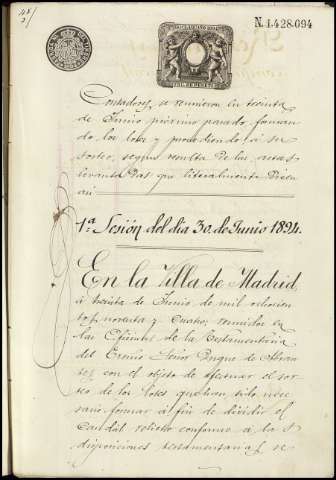 N. 1.428.094
Contadores, se reunieron en treinta
de Junio próximo pasado, forman
do los lotes y procediendo á su
sorteo, segun resulta de las actas
levantadas que literalmente dicen
asi
1ª Sesión del dia 30 de Junio 1894.
En la Villa de Madrid,
á treinta de Junio de mil ochocien
tos noventa y cuatro, reunidos en
las Oficinas de la Testamentaria
del Excmo Señor Duque de
con el objeto de efectuar el sor
teo de los lotes que han sido nece
sario formar á fin de dividir el
caudal relicto conforme á las
disposiciones testamentarias, se